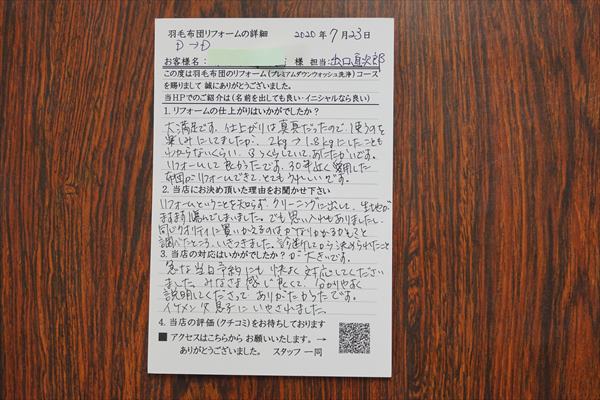 羽毛布団リフォームの詳細 2020年7月23日
D→D
お客様名: 様 担当:出口直次郎
この度は羽毛布団のリフォーム(プレミアムダウンウォッシュ洗浄)コース
を賜りまして 誠にありがとうございました。
当HPでのご紹介は(名前を出しても良い・イニシャルなら良い)
1. リフォームの仕上がりはいかがでしたか?
大満足です。仕上がりは真夏だったので、使うのを
楽しみにしてましたが、2kg→1.8kgにしたことも
わからないくらい、ふっくらしていて、あたたかいです。
リフォームして良かったです。30年近く愛用した
布団がリフォームできて、とてもうれしいです。
2. 当店にお決め頂いた理由をお聞かせ下さい
リフォームということを知らず、クリーニングに出して、生地が
ますます傷んでしまいました。でも思い入れもありましたし、
同じクオリティに買いかえるのはかなりかかるかもって
調べたところ、いきつきました。診断してから決められたこと
が大きいです。
3. 当店の対応はいかがでしたか?
急な当日予約にも快よく対応してください
ました。みなさま感じ良くて、分かりやすく
説明してくださって ありがたかったです。
イケメン父息子にいやされました。
4. 当店の評価(クチコミ)をお待ちしております
■ アクセスはこちらから お願いいたします。→
ありがとうございました。 スタッフ 一同